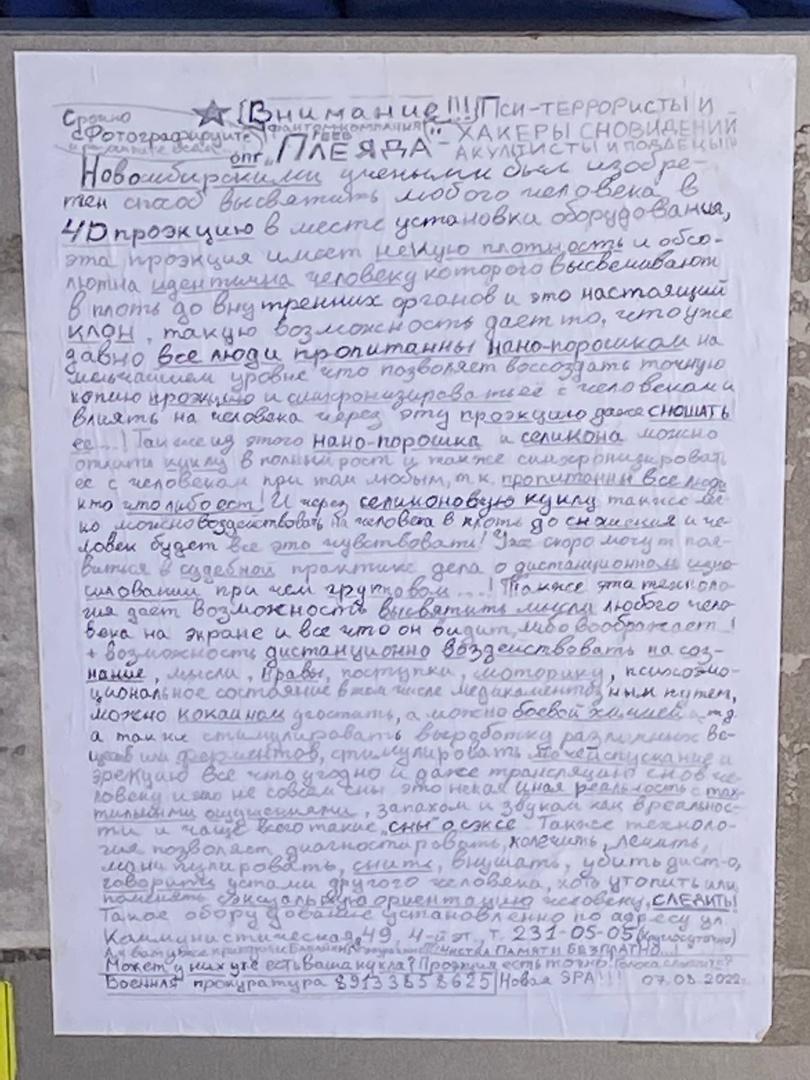 Срочно ☆ (Внимание!!! Пси-террористы и
сфотографируйте фантом-компания хакеры сновидений
опг „ПЛЕЯДА" геев акушисты и подлецы!!
Новосибирскими учеными был изобре-
тен способ высвятить любого человека в
4D проэкцию в месте установки оборудования,
эта проэкция имеет некую плотность и обсо-
лютна идентична человеку которого высвечивают
в плоть до внутренних органов и это настоящий
клон, такую возможность дает то, что уже
давно все люди пропитанны нано-порошком на
мельчайшем уровне что позволяет воссоздать точную
копию проэкцию и синхронизировать её с человеком и
влиять на человека через эту проэкцию даже сношать
ее...! Также из этого нано-порошка и селикона можно
отлить куклу в полный рост и также синхронизировать
ее с человеком при том любым, т.к. пропитанны все люди
кто что либо ест! И через селиконовую куклу также лег-
ко можно воздействовать на человека в плоть до сношения и че-
ловек будет все это чувствовать! Уже скоро могут поя-
виться в судебной практике дела о дистанционном изна-
силовании при чем групповом....! Также эта техноло-
гия дает возможность высвятить мысли любого чело-
века на экране и все что он видит, либо воображает!
+ возможность дистанционно воздействовать на соз-
нание, мысли, нравы, поступки, моторику, психоэмо-
циональное состояние в том числе медикаментозным путем,
можно кокаином угостить, а можно боевой химией и т.д.
а также стимулировать выработку различных ве-
ществ или ферментов, стимулировать мочеиспускание и
эрекцию все что угодно и даже трансляцию снов че-
ловеку и это не совсем сны это некая иная реальность с так-
тильными ощущениями, запахом и звукам как в реальнос-
ти и чаще всего такие „сны" о сэксе. Также техноло-
гия позволяет диагностировать, колечить, лечить,
манипулировать, снить, внушать, убить дист-о,
говорить устами другого человека, хоть утопить или
поменять сэксуальную ориентацию человеку, СЛЕДИТЬ!
Такое оборудование установленно по адресу ул.
Коммунистическая, 49, 4-й эт., т. 231-05-05 (круглосуточно)
чистка памяти безпратно...!
Может у них уже есть ваша кукла? Проэкция есть точно. Голоса слышите?
Военная прокуратура 89133858625 Новая ЭРА!!! 07.08.2022г.